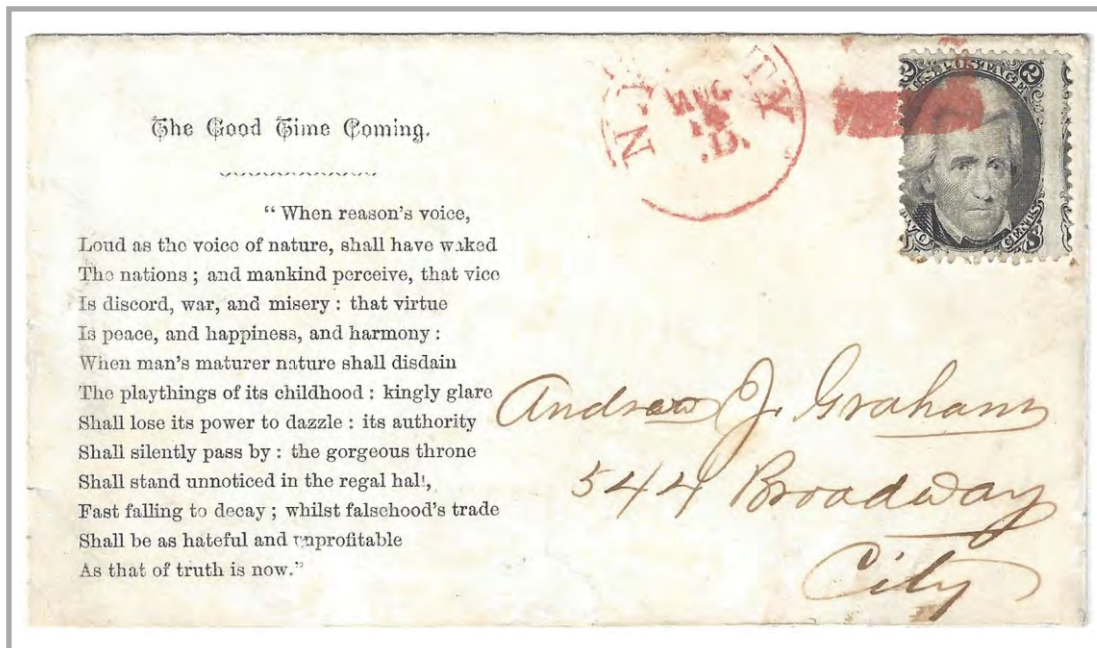 The Good Time Coming.
“ When reason's voice,
Loud as the voice of nature, shall have waked
The nations ; and mankind perceive, that vice
Is discord, war, and misery : that virtue
Is peace, and happiness, and harmony :
When man's maturer nature shall disdain
The playthings of its childhood : kingly glare
Shall lose its power to dazzle : its authority
Shall silently pass by : the gorgeous throne
Shall stand unnoticed in the regal hall,
Fast falling to decay ; whilst falsehood's trade
Shall be as hateful and unprofitable
As that of truth is now.”
N.Y. CITY
AUG
D.
2 U.S. POSTAGE 2
TWO CENTS
Andrew J. Graham
544 Broadway
City